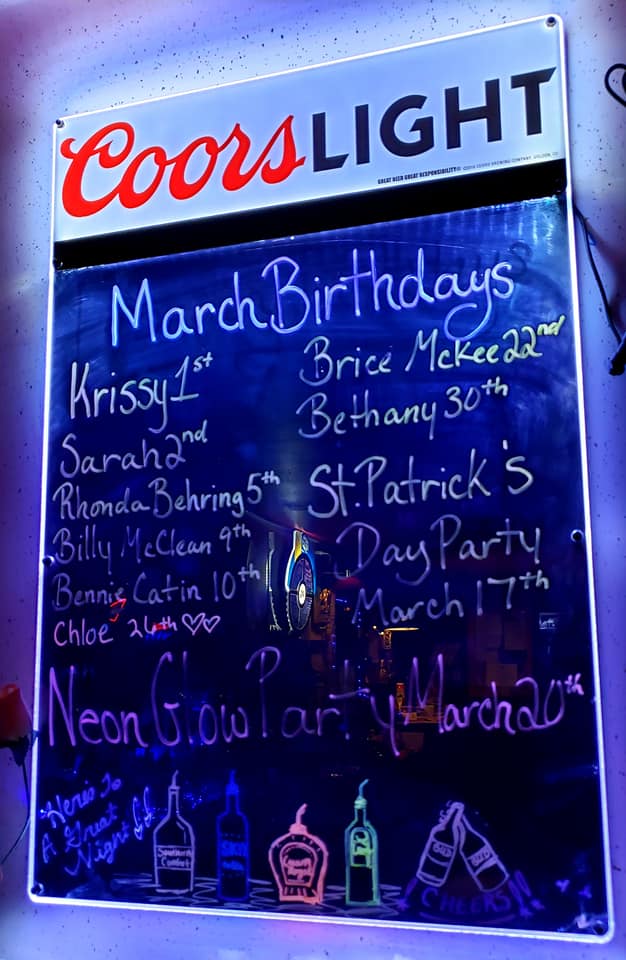 Coors LIGHT
GREAT BEER GREAT RESPONSIBILITY
March Birthdays
Krissy 1st
Sarah 2nd
Rhonda Behring 5th
Billy McClean 9th
Bennie Catin 10th
Chloe 24th
Brice McKee 22nd
Bethany 30th
St. Patrick's
Day Party
March 17th
Neon Glow Party March 20th
Here's To
A Great
Night
Southern
Comfort
BUD
BUD
CHEERS!!